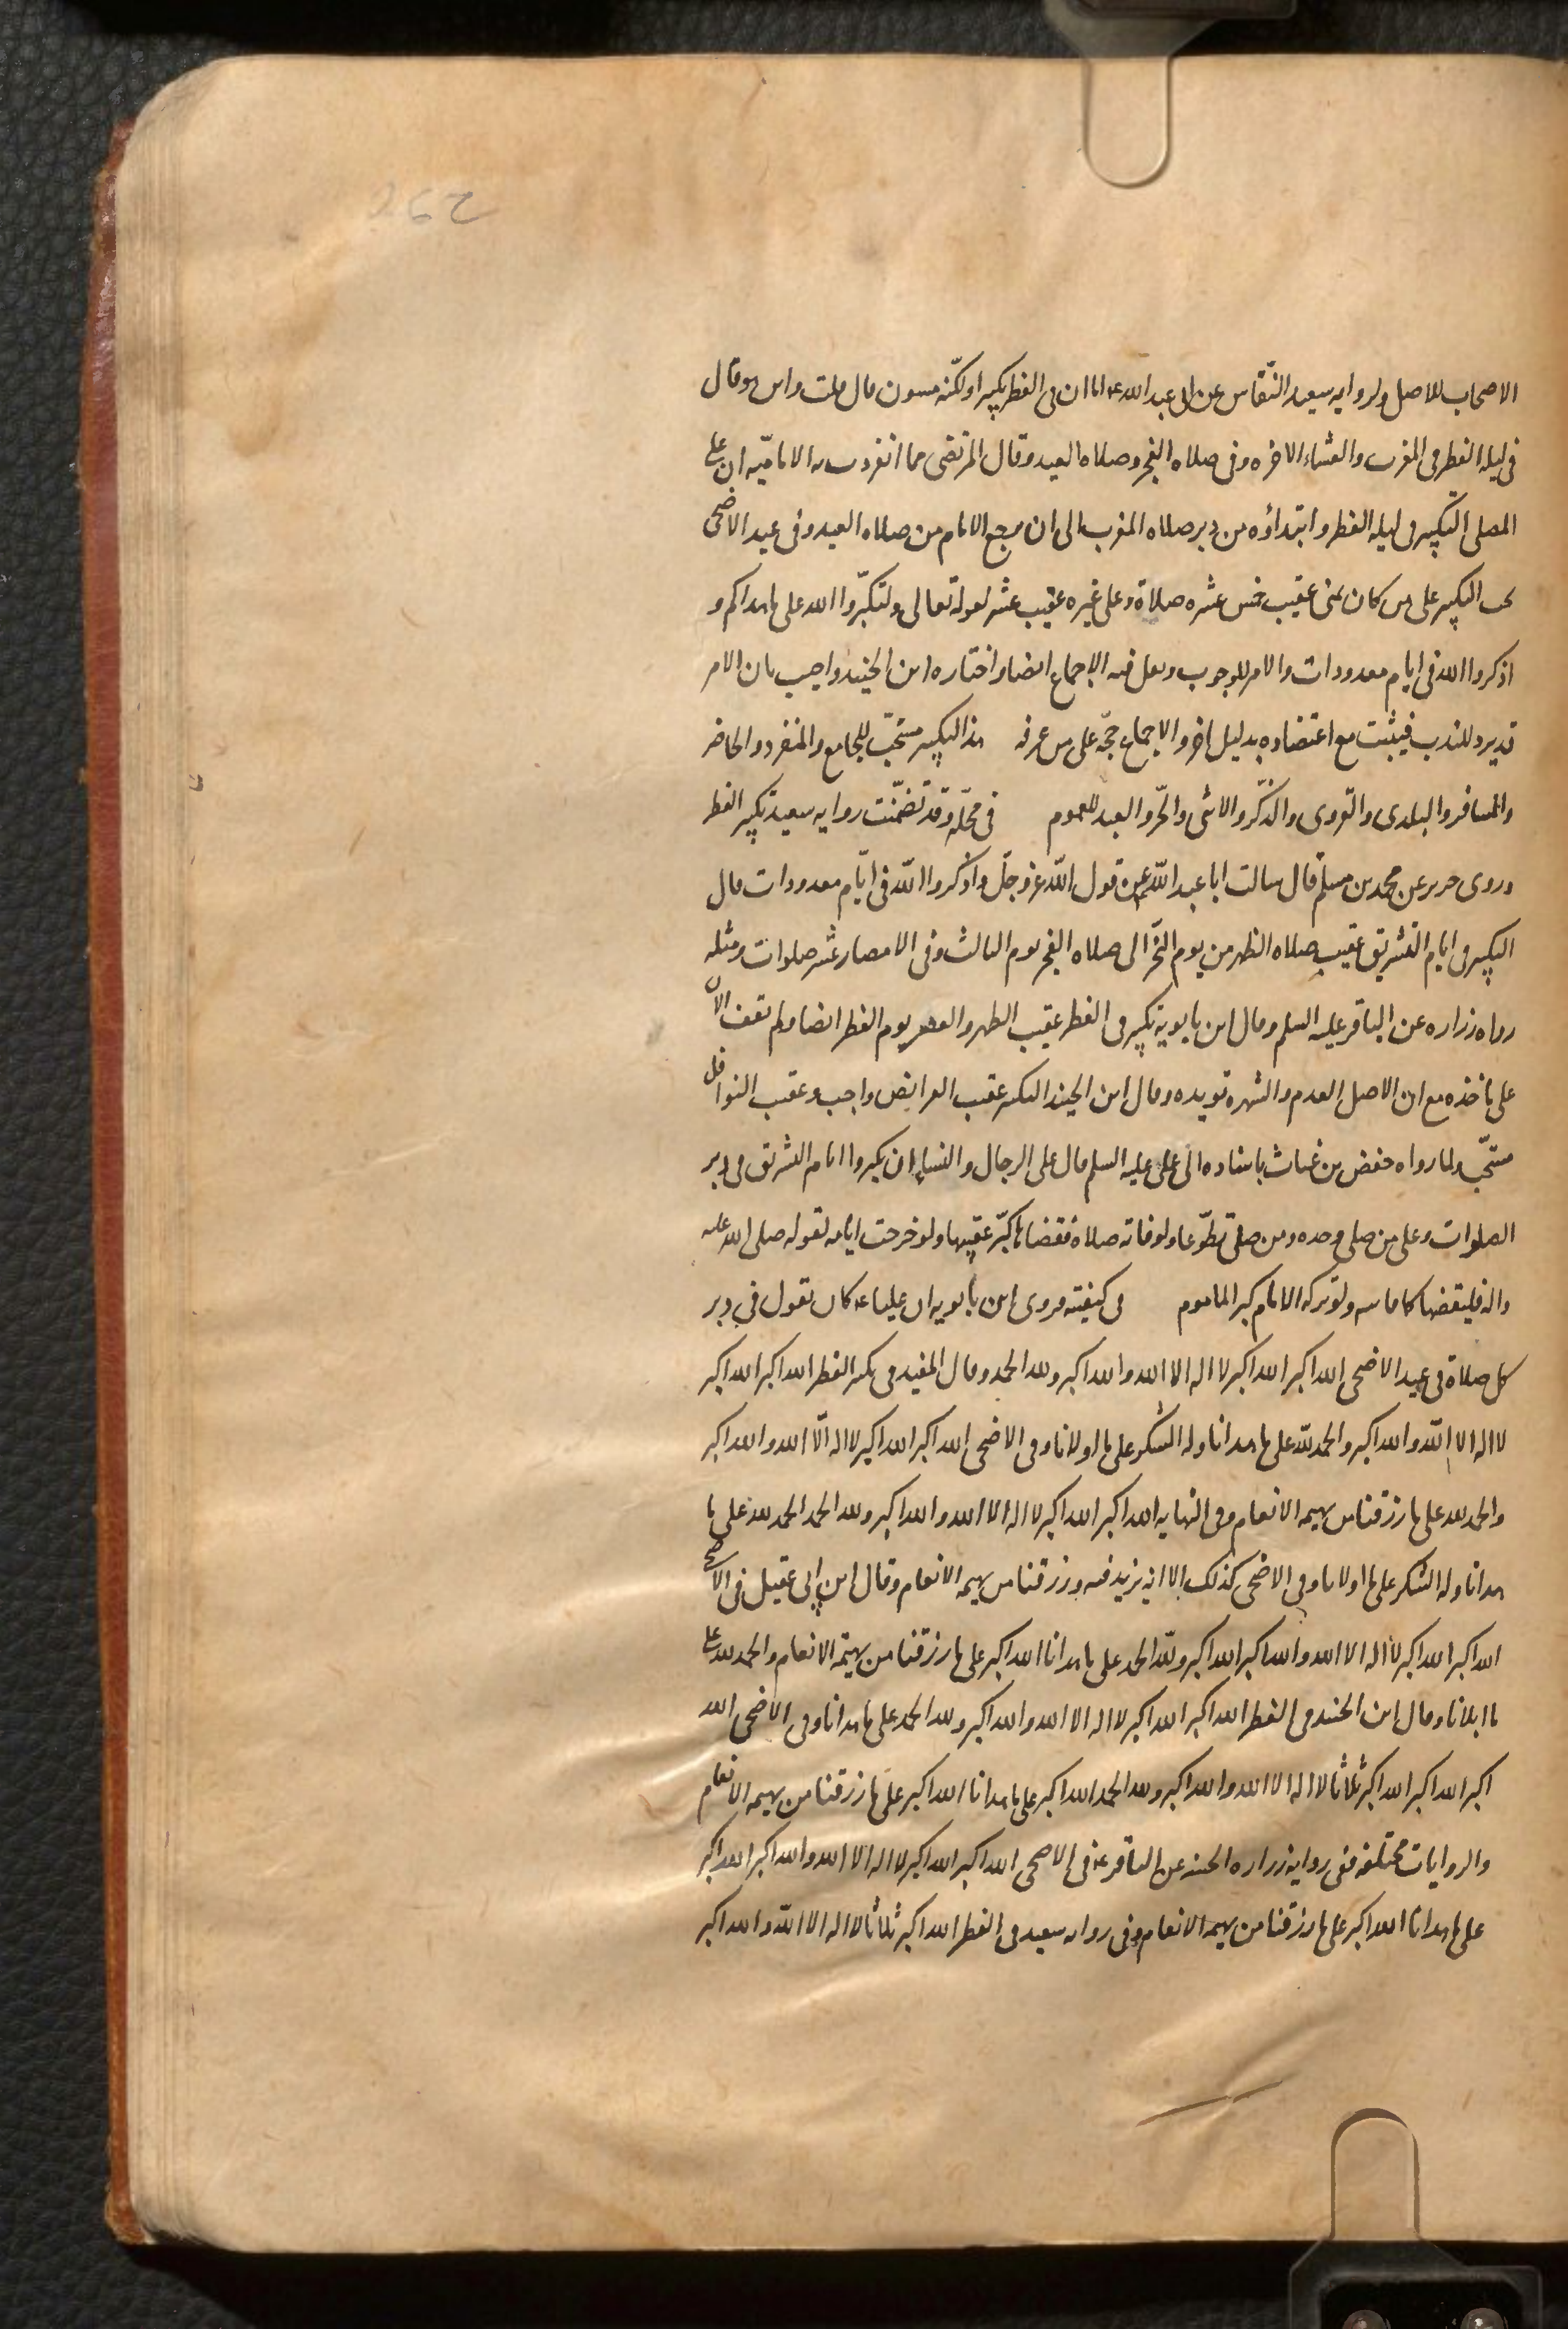 262
الاصحاب للاصل ولروايه سعيد النقّاش عن ابى عبد الله ع اما ان فى الفطر تكبيرا ولكنّه مسنون قال قلت واين هو قال
فى ليله الفطر فى المغرب والعشاء الاخره وفى صلاه الفجر وصلاه العيد وقال المرتضى مما انفردت به الاماميّه ان على
المصلى التكبير فى ليله الفطر وابتداؤه من دبر صلاه المغرب الى ان يرجع الامام من صلاه العيد وفى عيد الاضحى
يجب التكبير على من كان بمنى عقيب خمس عشره صلاة وعلى غيره عقيب عشر لقوله تعالى ولتكبّروا الله على ما هداكم و
اذكروا الله فى ايام معدودات والامر للوجوب ونقل فيه الاجماع ايضا واختاره ابن الجنيد واجيب بان الامر
قد يرد للندب فيثبت مع اعتضاده بدليل اخر والاجماع حجّه على من عرفه هذا التكبير مستحبّ للجامع والمنفرد والحاضر
والمسافر والبلدى والقروى والذّكر والانثى والحّر والعبد للعموم فى محلّه وقد تضمّنت روايه سعيد تكبير الفطر
وروى حريز عن محمد بن مسلم قال سالت ابا عبد الله ع عن قول اللّه عز وجلّ واذكروا اللّه فى ايّام معدودات قال
التكبير فى ايام التشريق عقيب صلاه الظهر من يوم النحّر الى صلاه الفجر يوم الثالث وفى الامصار عشر صلوات ومثله
رواه زراره عن الباقر عليه السلم وقال ابن بابويه يكبر فى الفطر عقيب الظهر والعصر يوم الفطر ايضا ولم نقف الان
على ماخذه مع ان الاصل العدم والشهره تويده وقال ابن الجنيد التكبير عقيب الفرايض واجب وعقيب النوافل
مستحّب ولما رواه حفص بن غياث باسناده الى على عليه السلم قال على الرجال والنساء ان يكبروا ايام التشريق فى دبر
الصلوات وعلى من صلى وحده ومن صلى تطوّعا ولو فاته صلاة فقضاها كبّر عقيبها ولو خرجت ايامه لقوله صلى الله عليه
واله فليقضها كما فاتته ولو تركه الامام كبر الماموم فى كيفيته فروى ابن بابويه ان عليا ع كان يقول فى دبر
كل صلاة فى عيد الاضحى الله اكبر الله اكبر لا اله الا الله والله اكبر ولله الحمد وقال المفيد فى تكبير الفطر الله اكبر الله اكبر
لا اله الا اللّه والله اكبر والحمد للّه على ما هدانا وله الشكر على ما اولانا وفى الاضحى الله اكبر الله اكبر لا اله الّا الله والله اكبر
والحمد لله على ما رزقنا من بهيمه الانعام وفى النهايه الله اكبر الله اكبر لا اله الا الله والله اكبر ولله الحمد الحمد لله على ما
هدانا وله الشكر على ما اولانا وفى الاضحى كذلك الا انه يزيد فيه ورزقنا من بهيمه الانعام وقال ابن ابى عقيل فى الاضحى
الله اكبر الله اكبر لا اله الا الله والله اكبر الله اكبر وللّه الحمد على ما هدانا الله اكبر على ما رزقنا من بهيمة الانعام والحمد لله على
ما ابلانا وقال ابن الجنيد فى الفطر الله اكبر الله اكبر لا اله الا الله والله اكبر ولله الحمد على ما هدانا وفى الاضحى الله
اكبر الله اكبر الله اكبر ثلاثا لا اله الا الله والله اكبر ولله الحمد الله اكبر على ما هدانا الله اكبر على ما رزقنا من بهيمه الانعام
والروايات مختلفه ففى روايه زراره الحسنه عن الباقر ع فى الاضحى الله اكبر الله اكبر لا اله الا الله والله اكبر الله اكبر
على ما هدانا الله اكبر على ما رزقنا من بهيمه الانعام وفى روايه سعيد فى الفطر الله اكبر ثلاثا لا اله الا اللّه والله اكبر